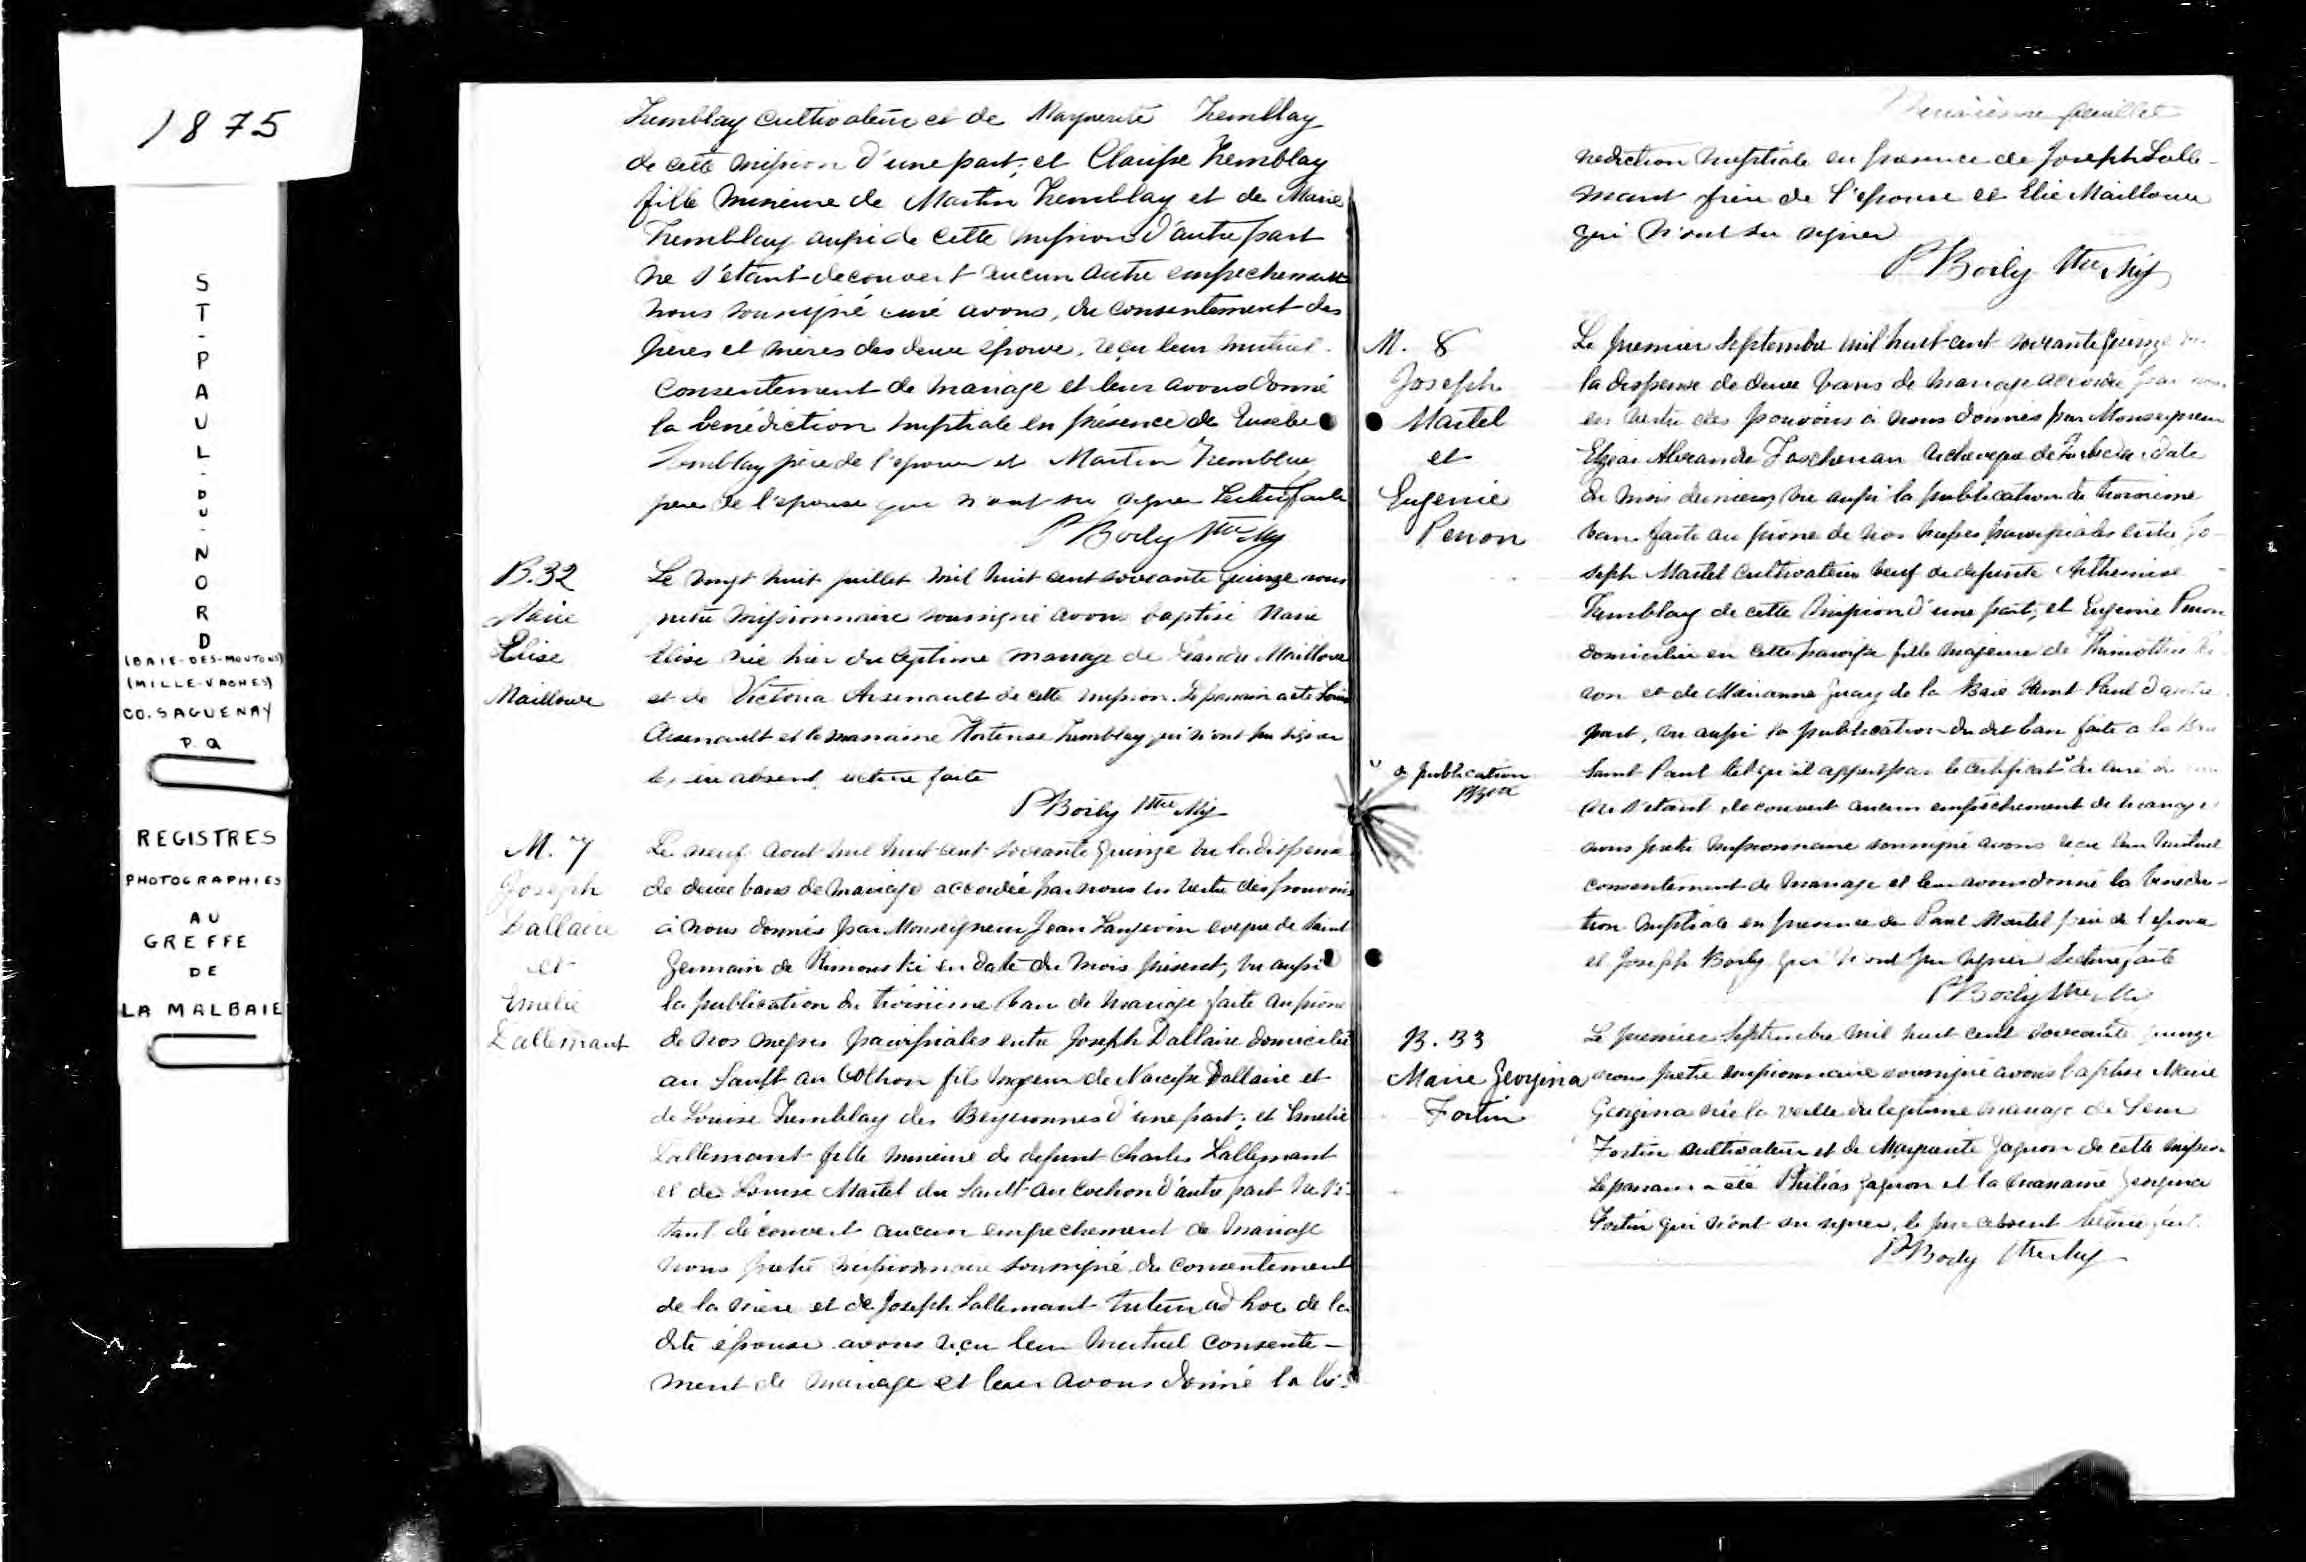 1875
ST-PAUL-DU-NORD
(BAIE-DES-MOUTONS)
(MILLE-VACHES)
CO. SAGUENAY
P.Q
REGISTRES
PHOTOGRAPHIES
AU
GREFFE
DE
LA MALBAIE
Tremblay cultivateur et de Marguerite Tremblay
de cette mission d'une part; et Clarisse Tremblay
fille mineure de Martin Tremblay et de Marie
Tremblay aussi de cette mission d'autre part
ne s'étant decouvert aucun autre empechement
nous soussigné curé avons, du consentement des
pères et mères des deux époux, reçu leur mutuel
consentement de mariage et leur avons donné
la benédiction nuptiale en présence de Eusèbe
Tremblay père de l'epoux et Martin Tremblay
pere de l'epouse qui n'ont su signer Lecture faite
P Boily Ptre Mis
B. 32
Marie
Elise
Mailloux
Le vingt huit juillet mil huit cent soixante quinze nous
pretre missionnaire soussigné avons baptisé Marie
Elise née hier du légitime mariage de Mailloux
et de Victoria Arsenault de cette mission. Le parrain a été Louis
Arsenault et la marraine Hortense Tremblay qui n'ont su signer
le père absent, lecture faite
P Boily Ptre Mis
M. 7
Joseph
Dallaire
et
Emelie
Lallemant
Le neuf Aout mil huit cent soixante quinze vu la dispense
de deux bans de mariage accordée par nous en vertu des pouvoirs
à nous donnés par Monseigneur Jean Langevin eveque de Saint
Germain de Rimouski en date du mois présent, vu aussi
la publication du troisième ban de mariage faite au prone
de nos messes paroissiales entre Joseph Dallaire domicilié
au Sault au Cochon fils majeur de Narcisse Dallaire et
de Louise Tremblay des Bergeronnes d'une part; et Emelie
Lallemant fille mineure de defunt Charles Lallemant
et de Louise Martel du Sault au Cochon d'autre part ne s'é-
tant découvert aucun empechement de mariage
nous pretre missionnaire soussigné du consentement
de la mère et de Joseph Lallemant tuteur ad hoc de la
dite épouse avons reçu leur mutuel consente-
ment de mariage et leur avons donné la bé-
feuillet
nediction nuptiale en presence de Joseph Lalle-
mant frère de l'epouse et Elie Mailloux
qui n'ont su signer
P Boily Ptre Mis
M. 8
Joseph
Martel
et
Eugenie
Perron
Le premier Septembre mil huit cent soixante quinze vu
la dispense de deux bans de mariage accordée par nous
en vertu des pouvoirs à nous donnés par Monseigneur
Elzéar Alexandre Taschereau Archeveque de Québec en date
du mois dernier, vu aussi la publication du troisieme
ban faite au prone de nos messes paroissiales entre Jo-
seph Martel Cultivateur veuf de defunte Arthemise
Tremblay de cette mission d'une part, et Eugenie Perron
domiciliée en cette paroisse fille majeure de Thimothée Per-
ron et de Marianne Guay de la Baie Saint Paul d'autre
part, vu aussi la publication du dit ban faite a la Baie
Saint Paul tel qu'il appert par le certificat du curé du
ne s'étant decouvert aucun empêchement de mariage
nous pretre missionnaire soussigné avons reçu leur mutuel
consentement de mariage et leur avons donné la bénédic-
tion nuptiale en presence de Paul Martel père de l'epoux
et Joseph Boily qui n'ont pu signer Lecture faite
P Boily Ptre Mis
de publication
B. 33
Marie Georgina
Fortin
Le premier Septembre mil huit cent soixante quinze
nous pretre missionnaire soussigné avons baptisé Marie
Georgina née la veille du legitime mariage de
Fortin cultivateur et de Marguerite Gagnon de cette mission
Le parrain a été Philéas Gagnon et la marraine Georgina
Fortin qui n'ont su signer, le père absent lecture faite
P Boily Ptre Mis